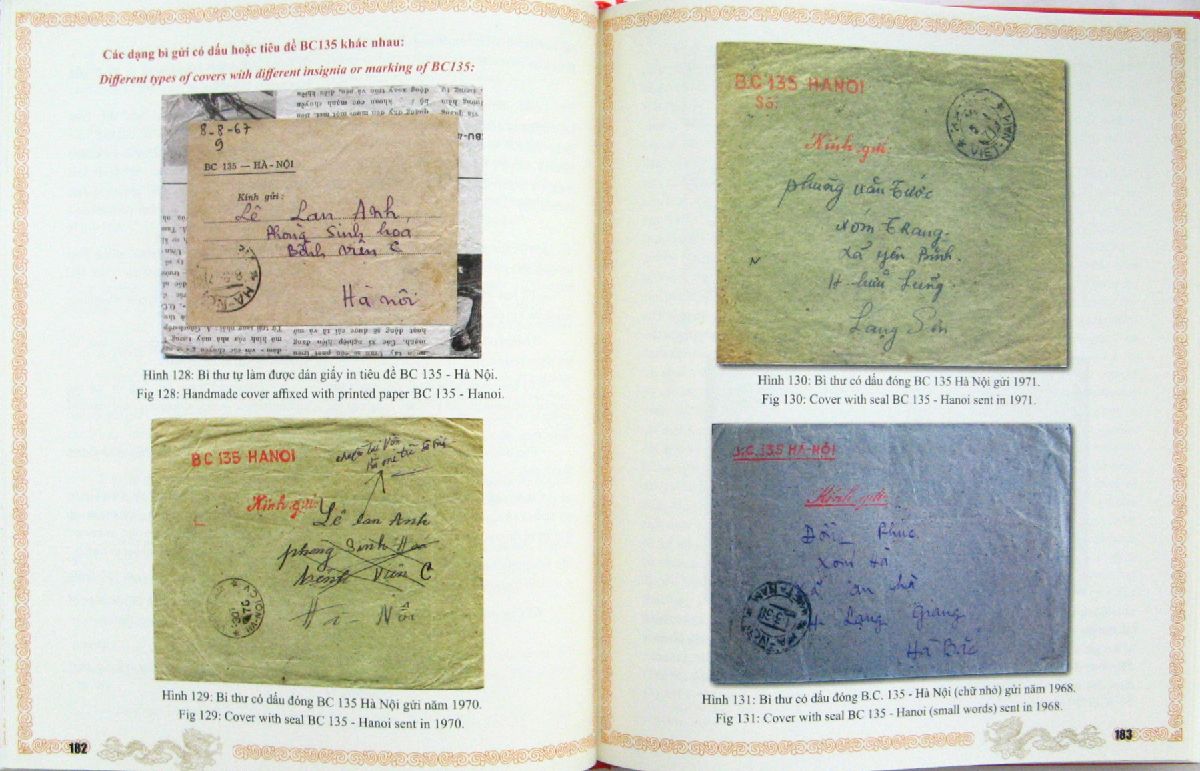 Các dạng bì gửi có dấu hoặc tiêu đề BC135 khác nhau:
Different types of covers with different insignia or marking of BC135:
8-8-67
9
BC 135 — HÀ-NỘI
Kính gửi:
Lê Lan Anh
Phòng Sinh hoa
Bệnh viện C
Hà nội
Hình 128: Bì thư tự làm được dán giấy in tiêu đề BC 135 - Hà Nội.
Fig 128: Handmade cover affixed with printed paper BC 135 - Hanoi.
BC 135 HANOI
Kính gửi:
Lê Lan Anh
phòng Sinh Hoa
Viện C
Hà Nội
Hình 129: Bì thư có dấu đóng BC 135 Hà Nội gửi năm 1970.
Fig 129: Cover with seal BC 135 - Hanoi sent in 1970.
182
B.C 135 HANOI
Số:
VIET-NAM
Kính gửi:
phùng văn Tước
Xóm Trang.
Xã yên Bình.
H- hữu Lũng.
Lạng Sơn
Hình 130: Bì thư có dấu đóng BC 135 Hà Nội gửi 1971.
Fig 130: Cover with seal BC 135 - Hanoi sent in 1971.
B.C. 135 HÀ-NỘI
Kính gửi:
Phúc
Xóm Hà
an hà
Lạng Giang
Hà Bắc
Hình 131: Bì thư có dấu đóng B.C. 135 - Hà Nội (chữ nhỏ) gửi năm 1968.
Fig 131: Cover with seal BC 135 - Hanoi (small words) sent in 1968.
183